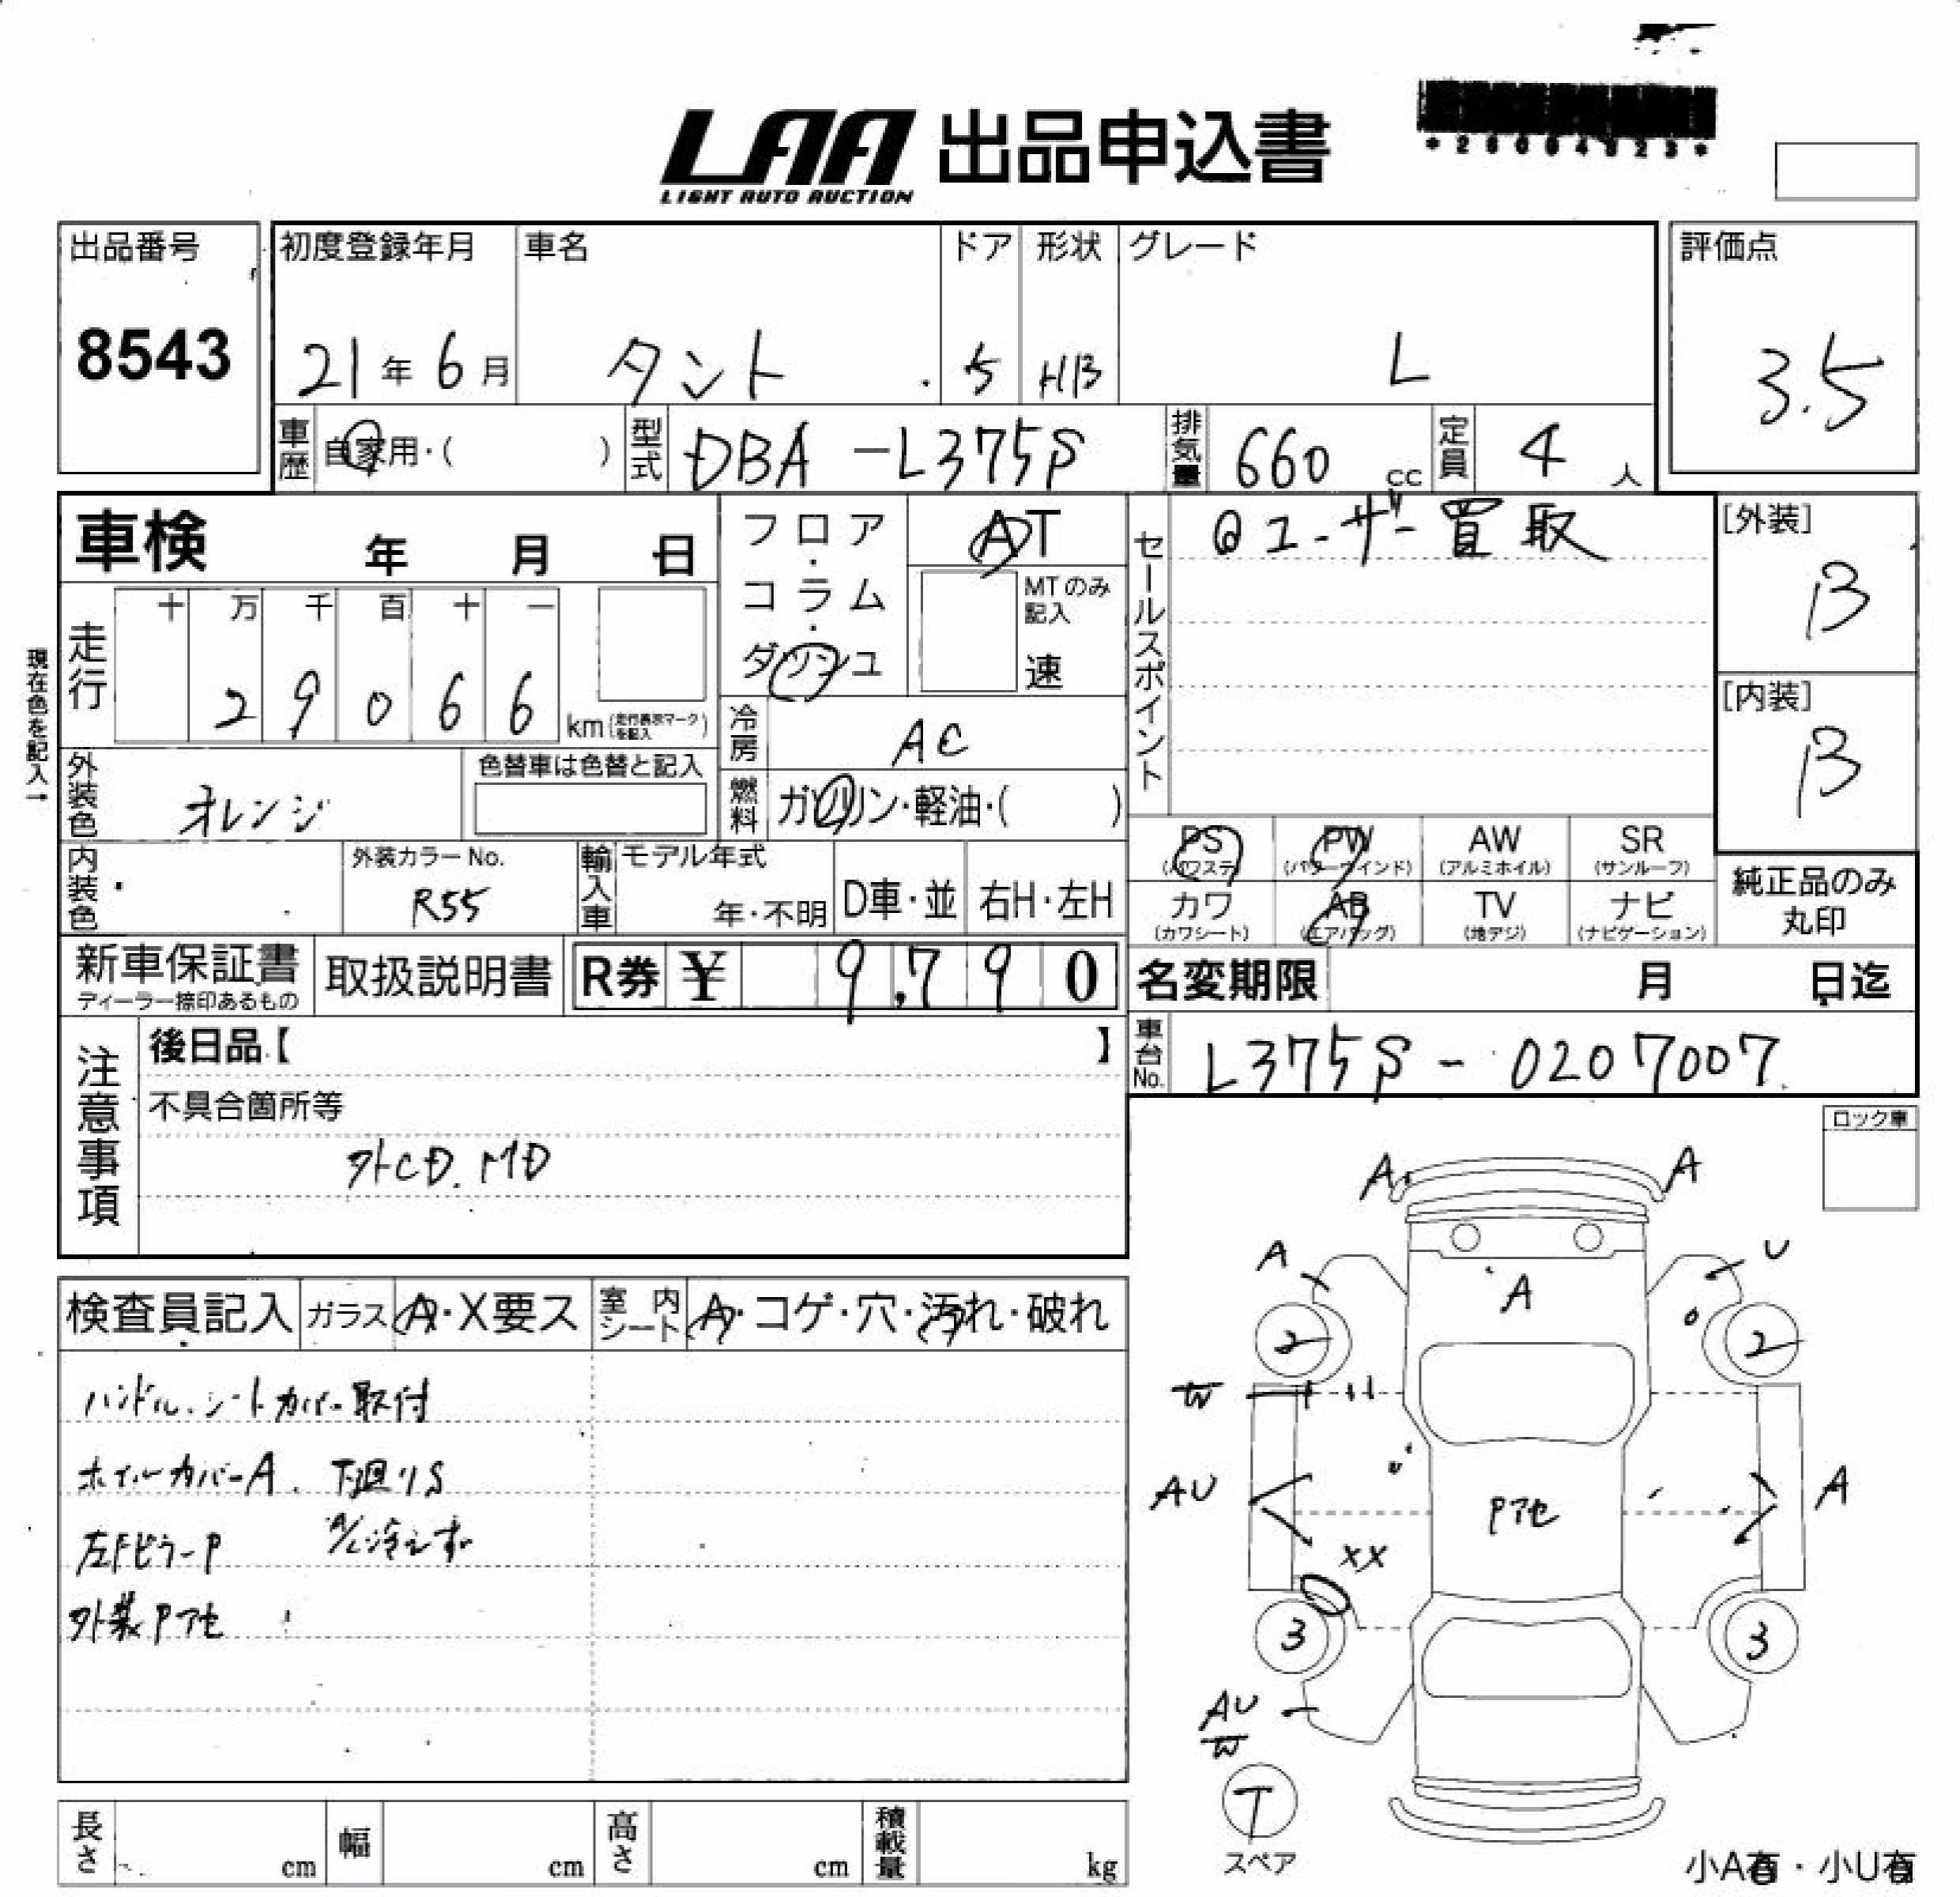 LAA 出品申込書
LIGHT AUTO AUCTION
出品番号 初度登録年月 車名 ドア 形状 グレード 評価点
8543 21年6月 タント 5 HB L 3.5
車歴 自家用・( ) 型式 DBA-L375S 排気量 660 cc 定員 4 人
車検 年 月 日
フロア・コラム・ダッシュ
AT
MTのみ記入
速
セールスポイント
ユーザー買取
[外装]
B
[内装]
B
現在色を記入→
走行 十 万 千 百 十 一
2 9 0 6 6 km(走行表示マークを記入)
冷房 AC
外装色 オレンジ 色替車は色替と記入
燃料 ガソリン・軽油・( )
内装色 外装カラーNo. R55
輸入車 モデル年式 年・不明 D車・並 右H・左H
PS (パワステ) PW (パワーウインド) AW (アルミホイル) SR (サンルーフ)
カワ (カワシート) AB (エアバッグ) TV (地デジ) ナビ (ナビゲーション)
純正品のみ丸印
新車保証書 ディーラー捺印あるもの 取扱説明書 R券 ¥ 9,790
名変期限 月 日迄
車台No. L375S-0207007
注意事項
後日品【 】
不具合箇所等
外CD.MD
ロック車
検査員記入 ガラス A・X要ス 室内シート A・コゲ・穴・汚れ・破れ
ハンドル、シートカバー取付
ホイルカバーA. 下廻りS
左Fピラーp A/C冷えず
外装Pアセ
A A
A U
A
2 2
W
AU A
Pアセ
XX
3 3
AU
W
T
スペア
長さ cm 幅 cm 高さ cm 積載量 kg
小A有・小U有